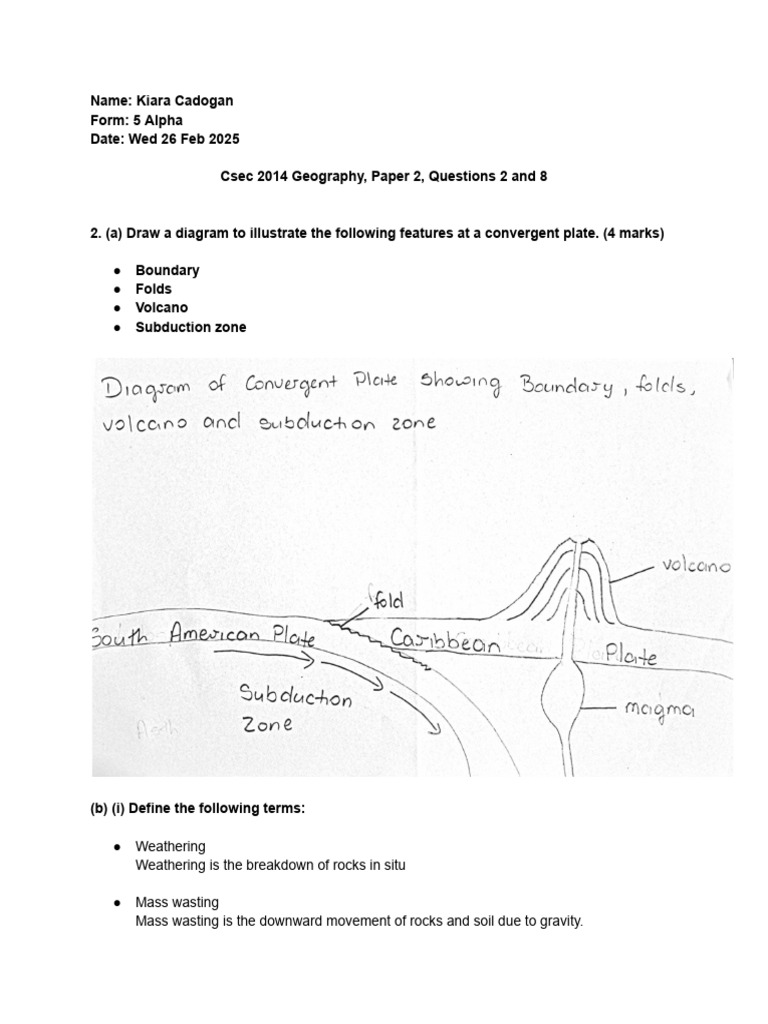 Name: Kiara Cadogan
Form: 5 Alpha
Date: Wed 26 Feb 2025
Csec 2014 Geography, Paper 2, Questions 2 and 8
2. (a) Draw a diagram to illustrate the following features at a convergent plate. (4 marks)
● Boundary
● Folds
● Volcano
● Subduction zone
Diagram of Convergent Plate showing Boundary, folds,
volcano and subduction zone
volcano
fold
South American Plate
Caribbean Plate
Subduction
Zone
magma
North
(b) (i) Define the following terms:
● Weathering
Weathering is the breakdown of rocks in situ
● Mass wasting
Mass wasting is the downward movement of rocks and soil due to gravity.